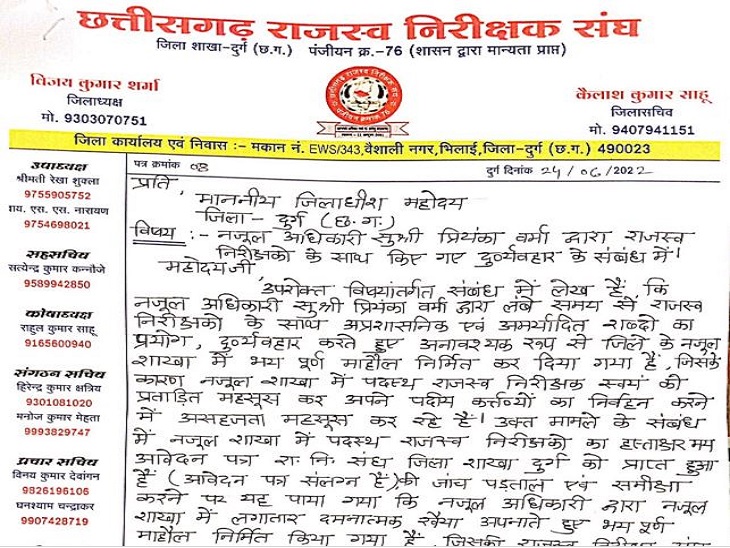 छत्तीसगढ़ राजस्व निरीक्षक संघ
जिला शाखा-दुर्ग (छ.ग.) पंजीयन क्र.-76 (शासन द्वारा मान्यता प्राप्त)
विजय कुमार शर्मा
जिलाध्यक्ष
मो. 9303070751
कैलाश कुमार साहू
जिलासचिव
मो. 9407941151
जिला कार्यालय एवं निवास :- मकान नं. EWS/343,वैशाली नगर,भिलाई,जिला-दुर्ग (छ.ग.) 490023
उपाध्यक्ष
श्रीमती रेखा शुक्ला
9755905752
राय. एस. एस. नारायण
9754698021
सहसचिव
सत्येन्द्र कुमार कन्नौजे
9589942850
कोषाध्यक्ष
राहुल कुमार साहू
9165600940
संगठन सचिव
हिरेन्द्र कुमार क्षत्रिय
9301081020
मनोज कुमार मेहता
9993829747
प्रचार सचिव
विनय कुमार देवांगन
9826196106
घनश्याम चन्द्राकर
9907428719
पत्र क्रमांक 03 दुर्ग दिनांक 24/06/2022
प्रति,
माननीय जिलाधीश महोदय
जिला - दुर्ग (छ.ग.)
विषय :- नजूल अधिकारी सुश्री प्रियंका वर्मा द्वारा राजस्व
निरीक्षको के साथ किए गए दुर्व्यवहार के संबंध में।
महोदय जी,
उपरोक्त विषयांतर्गत संबंध में लेख है कि
नजूल अधिकारी सुश्री प्रियंका वर्मा द्वारा लंबे समय से राजस्व
निरीक्षको के साथ अप्रशासनिक एवं अमर्यादित शब्दो का
प्रयोग, दुर्व्यवहार करते हुए अनावश्यक रूप से जिले के नजूल
शाखा में भय पूर्ण माहौल निर्मित कर दिया गया है, जिसके
कारण नजूल शाखा में पदस्थ राजस्व निरीक्षक स्वयं को
प्रताड़ित महसूस कर अपने पदीय कर्त्तव्यों का निर्वहन करने
में असहजता महसूस कर रहे है। उक्त मामले के संबंध
में नजूल शाखा में पदस्थ राजस्व निरीक्षको का हस्ताक्षर मय
आवेदन पत्र रा. नि. संघ जिला शाखा दुर्ग को प्राप्त हुआ
है (आवेदन पत्र संलग्न है) की जांच पड़ताल एवं समीक्षा
करने पर यह पाया गया कि नजूल अधिकारी द्वारा नजूल
शाखा में लगातार दमनात्मक रवैया अपनाते हुए भय पूर्ण
माहौल निर्मित किया गया है, जिसकी राजस्व निरीक्षक संघ